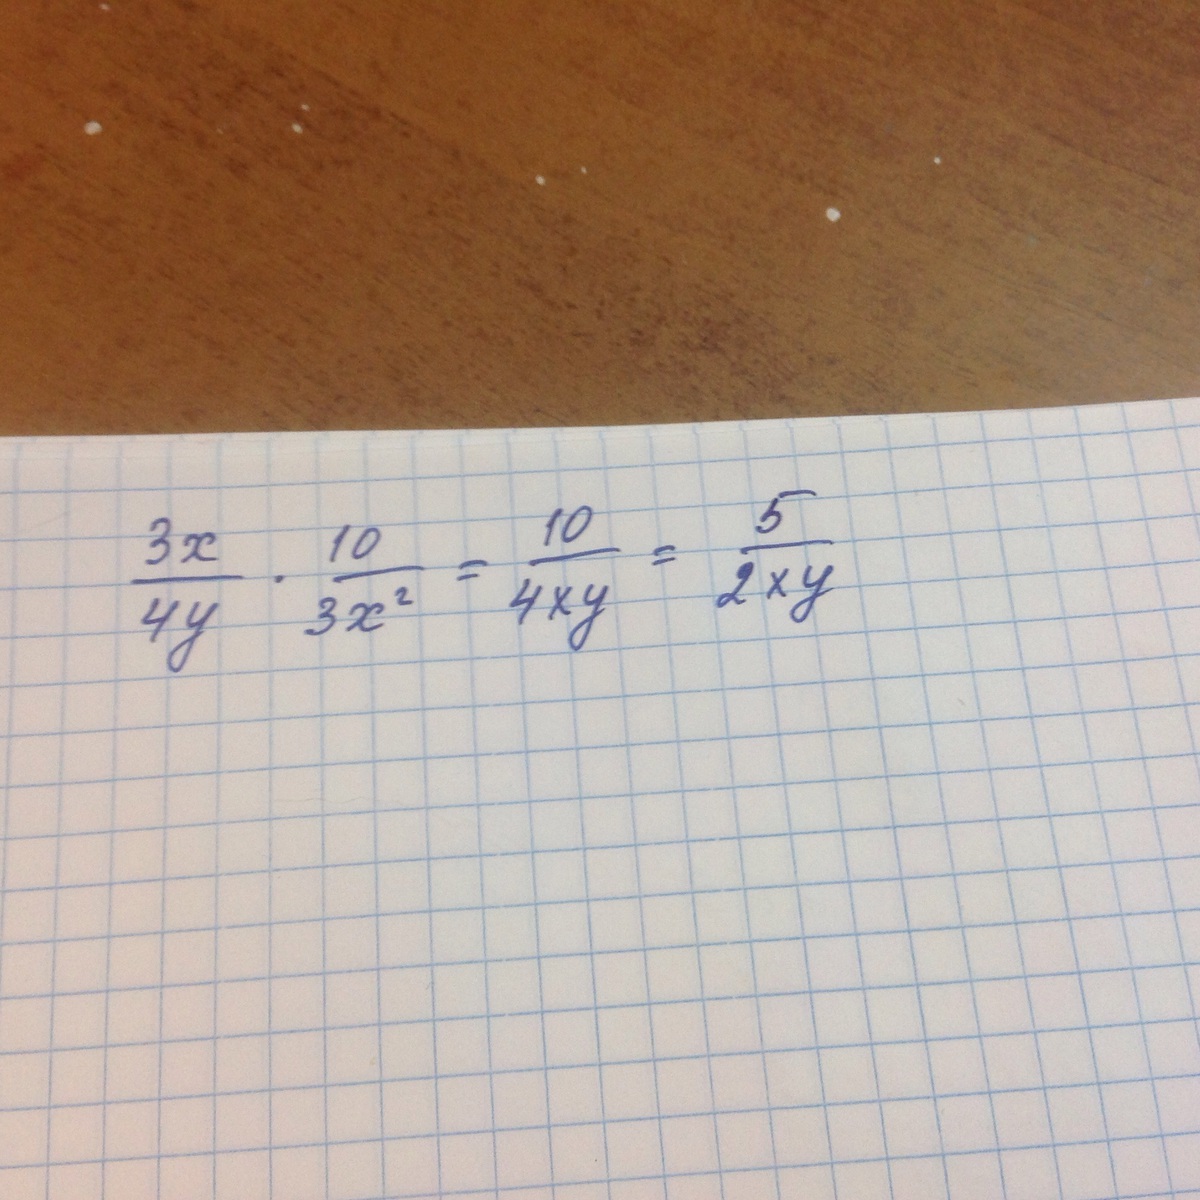 3x/4y · 10/3x² = 10/4xy = 5/2xy